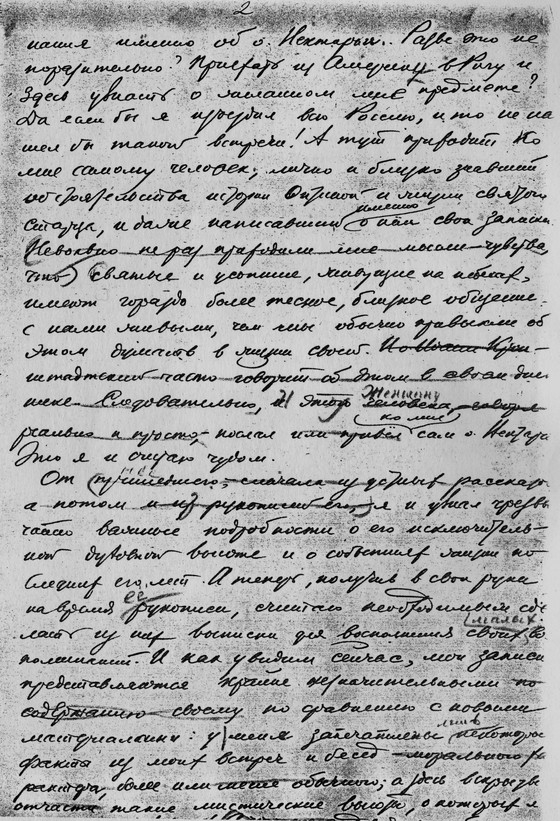 2
нашия именно об о. Нектарии.. Разве это не
поразительно? Приехать из Америки в Ригу и
здесь узнать о желанном мне предмете?
Да если бы я проездил всю Россию, и то не на
шел бы такой встречи! А тут приводит ко
мне самому человек, лично и близко знавший
обстоятельства истории Оптиной и жизни святого
Старца, и даже написавший именно о нем свои записки.
Невольно не раз приходили мне мысли-чувства,
что святые и усопшие, живущие на небесах,
имеют гораздо более тесное, близкое общение
с нами живыми, чем мы обычно привыкли об
этом думать в жизни своей. Иоанн Крон-
штадтский часто говорит об этом в своем днев
нике. Следовательно, и эту Женщину человека,
реально и просто послал или привел ко мне сам о. Нектарий
Это я и считаю чудом.
От нее сначала из устных рассказов
а потом и из рукописей его, я и узнал чрезвы
чайно важные подробности о его исключитель-
ной духовной высоте и о событиях жизни по
следних его лет. А теперь, получив в свои руки
на время ее рукописи, считаю необходимым сде
лать из них выписки для восполнения своих малых вос
поминаний. И как увидим сейчас, мои записи
представляются крайне незначительными по
содержанию своему по сравнению с новыми
материалами: у меня запечатлены лишь некоторые
факты из моих встреч и бесед морального ха
рактера, более или менее обычного; а здесь вскрыты
отчасти такие мистические высоты, о которых я